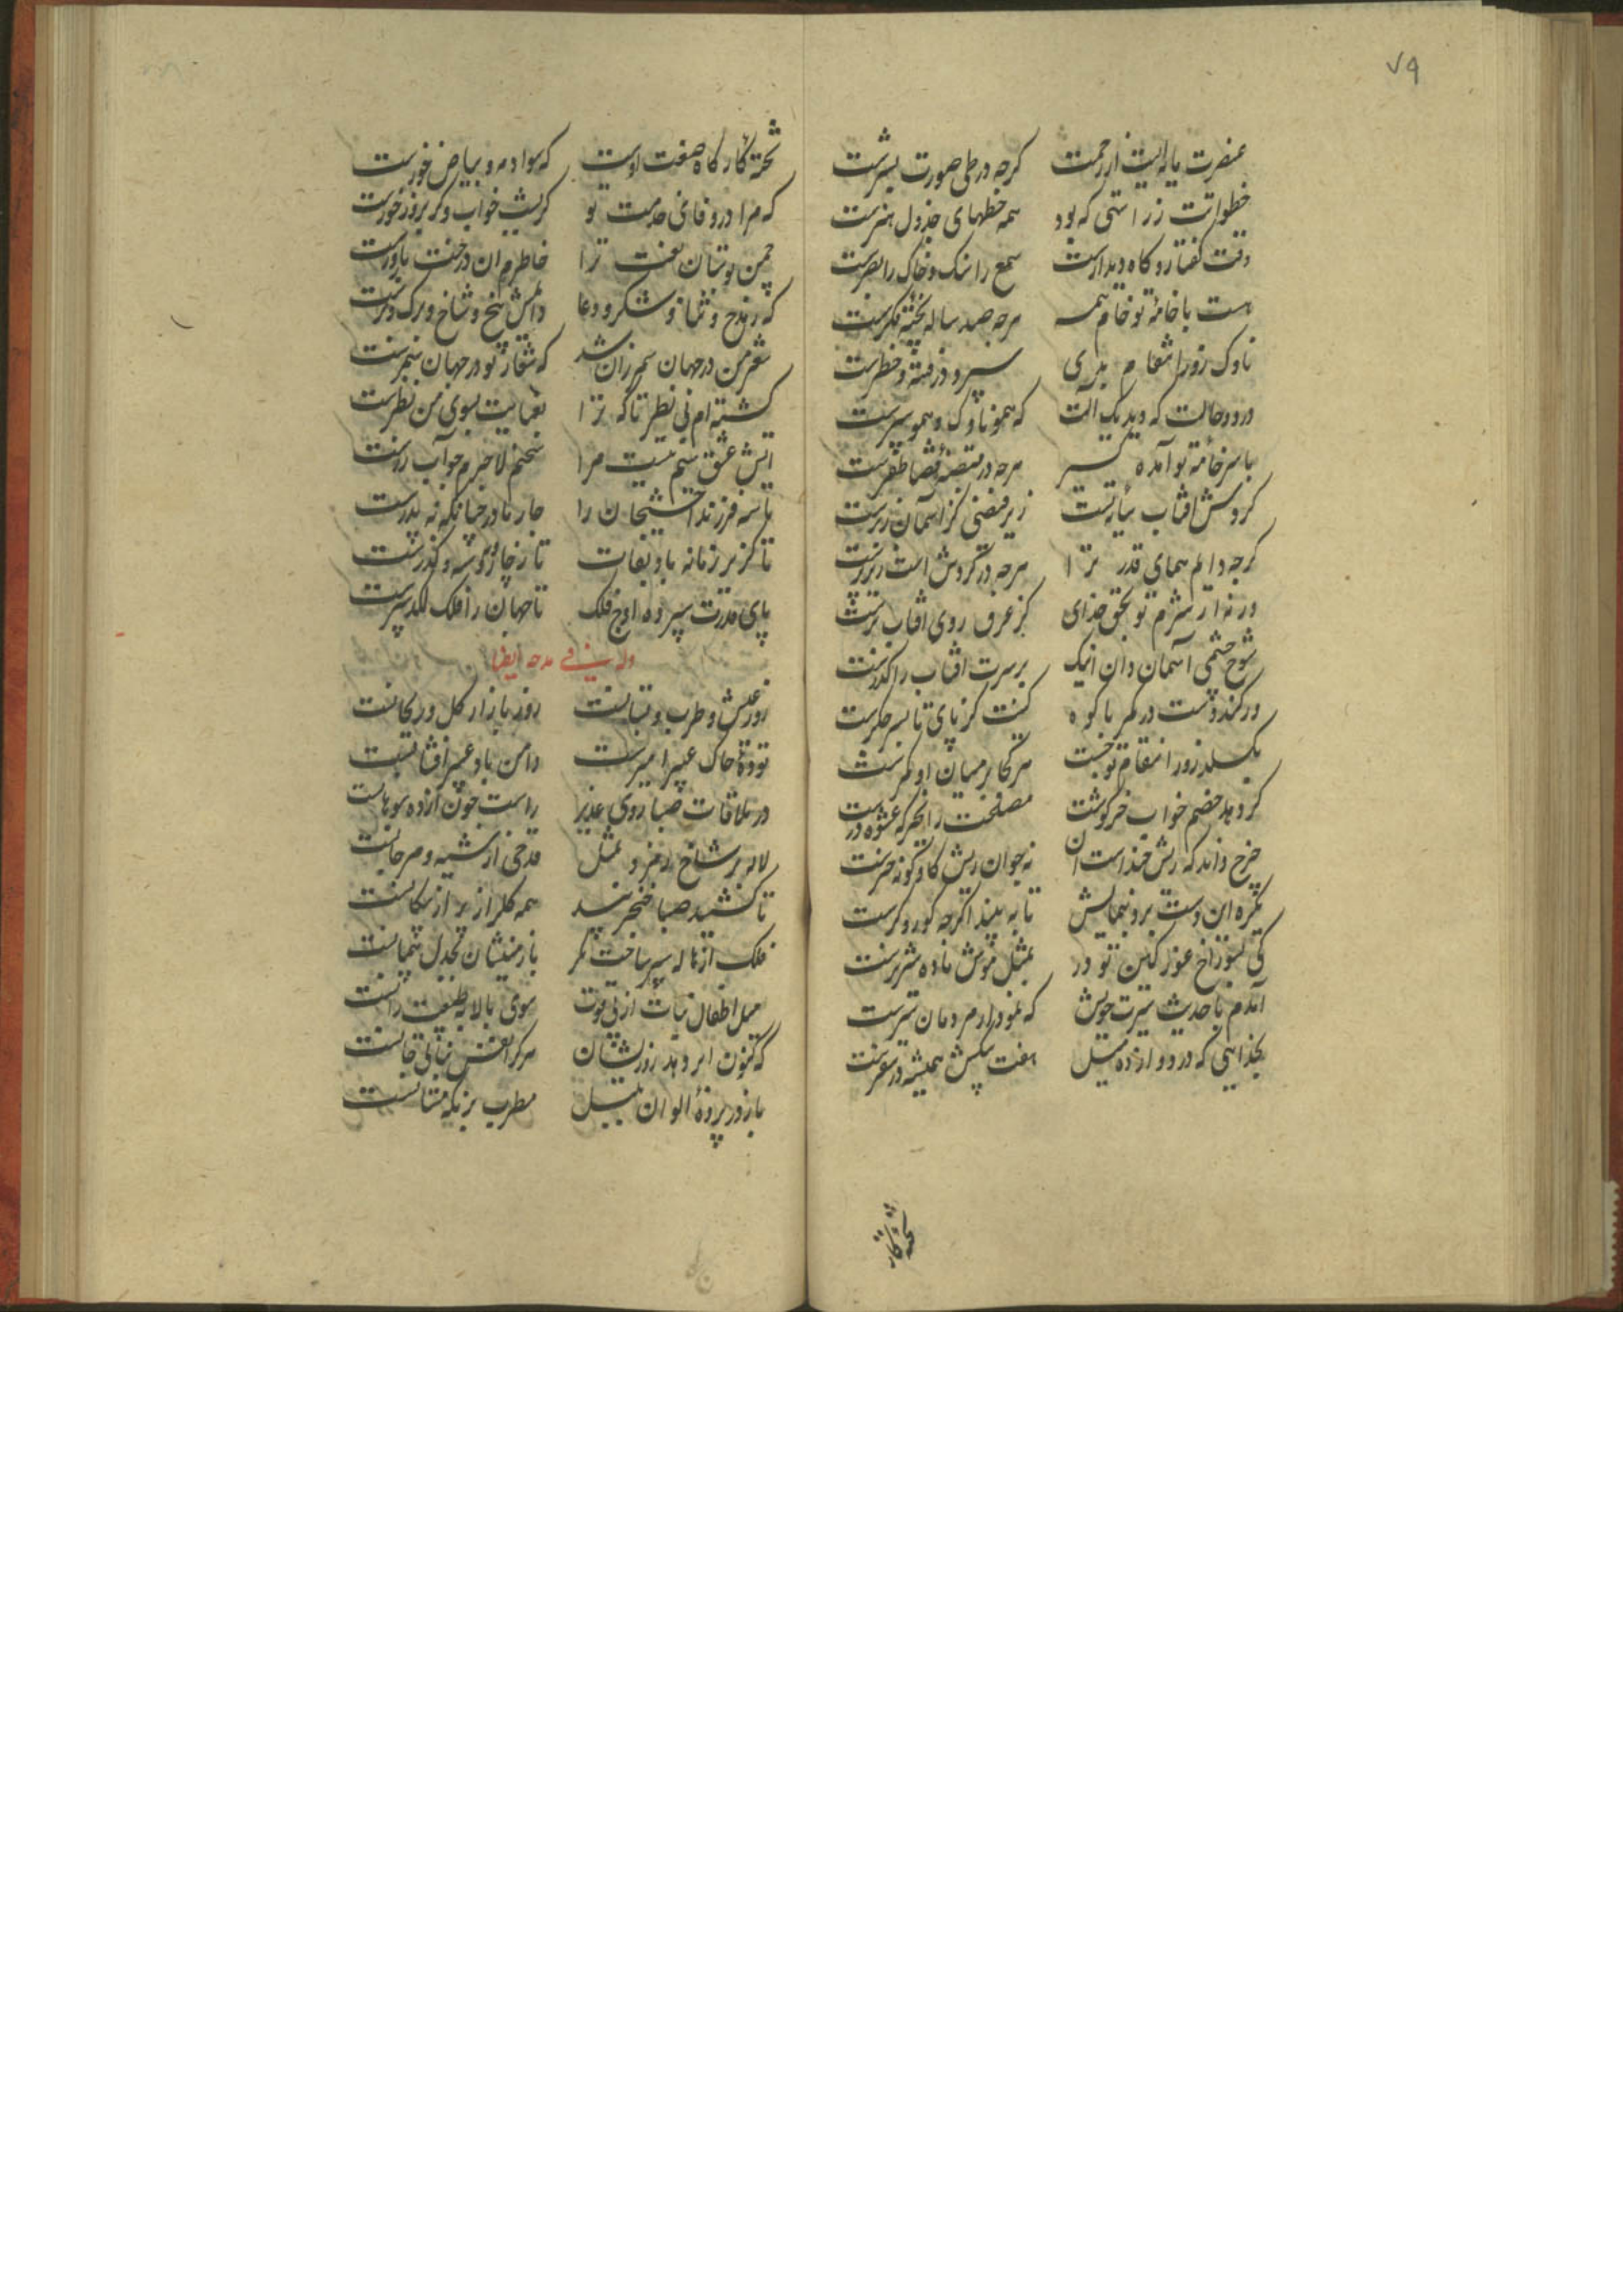 ۷۹
عنصرت مایه ایست از رحمت کرچه در طی صورت بشرست
خطواتت ز راستی که بود همه خطهای جدول هنرست
وقت کفتار و کاه دیدارت سمع را سنک و خاک را بصرست
هست با خامهٔ تو خام همه هرچه صد ساله پختهٔ فکرست
ناوک روز انتقام بدی سپر و در فتنه و خطرست
در دو حالت که دید یک آلت که همو ناوک و همو سپرست
با سر خامهٔ تو آمده کسیر هرچه در قبضهٔ قضا ظفرست
کردش افتاب سایهٔ تست زیر فیضی کز اسمان زبرست
کرچه دایم همای قدر ترا هرچه در کردش است زیر پرست
ورنه از شرم تو بحق خدای کز عرق روی افتاب ترست
شوخ چشمی آسمان دان اینک بر سرت افتاب را کذرست
ور کند دست در کمر با کوه کینت کز پای تا بسر جکرست
بکسلد روز انتقام تو چست هرکجا بر میان او کمرست
کر دهد خصم خواب خرکوشت مصلحت را بخر که عشوه خرست
چرخ داند که ریش خند است ان نه چوان ریش کاو کونه خرست
یکره این دست برد بنمایش تا به بیند اکرچه کور و کرست
کی بسوراخ غور کین تو در بمثل موش ماده شیر نرست
آمدم با حدیث سیرت خویش که نمودار مردمان سیرست
بخدایی که در دوازده میل هفت پیکش همیشه در سفرست
تختهٔ کار
تختهٔ کارکاه صنعت اوست که سواد مه و بیاض خورست
که مرا در وفای خدمت تو کر بشب خواب و کر بروز خورست
چمن بوستان نعت ترا خاطرم ان درخت بارورست
که ز مدح و ثنا و شکر و دعا دایمش بیخ و شاخ و برک و برست
شعر من در جهان سمر زان شد که شعار تو در جهان سمرست
کشته ام بی نظیر تاکه ترا بعنایت بسوی من نظرست
آتش عشق سیم نیست مرا سخنم لاجرم چو آب زرست
تا همه فرزند آخشیجان را چار مادر چنانکه نه پدرست
تا کزیر زمانه باد بقات تا ز چار کوشه و کذرست
پای قدرت سپرده اوج فلک تا جهان را فلک لکد سپرست
وله فی مدحه ایضا
روز عیش و طرب و بستانست روز بازار کل و ریحانست
تودهٔ خاک عبیر امیزست دامن باد عبیر افشانست
در ملاقات صبا روی غدیر راست چون آزدهٔ سوهانست
لاله بر شاخ زمرد بمثل قدحی از شبه و مرجانست
تا کشید صبا خنجر بید همه کلزار پر از پیکانست
فلک از هاله سپر ساخت مکر با زمینشان بجدل پیمانست
میل اطفال نبات از پی قوت سوی بالا به طبیعت زانست
که کنون ابر دهد روزیشان هرکرا نفس نباتی جانست
باز در پردهٔ الوان بلبل مطرب بزمکه مستانست